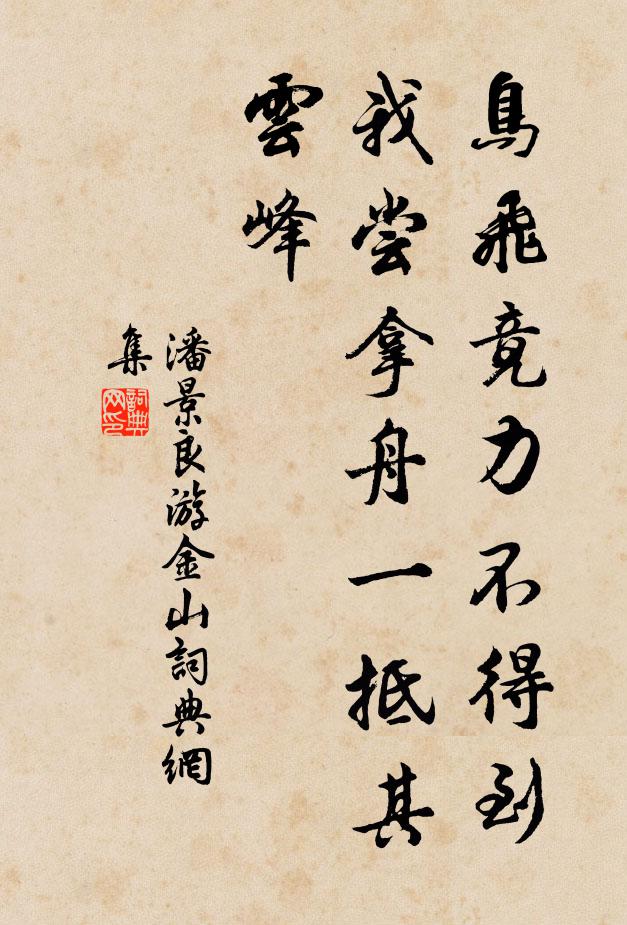 鳥飛竟力不得到
我尝拿舟一抵其
雲峰
潘景良游金山詞典網
集
詞典網印